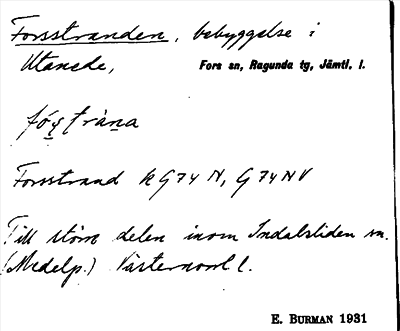 Forsstranden, bebyggelse i
Utanede, Fors sn, Ragunda tg, Jämtl. l.
Forsstrand RG 74 N, G 74 NV
Till större delen inom Indalsliden sn.
(Medelp.) Västernorrl l.
E. BURMAN 1931